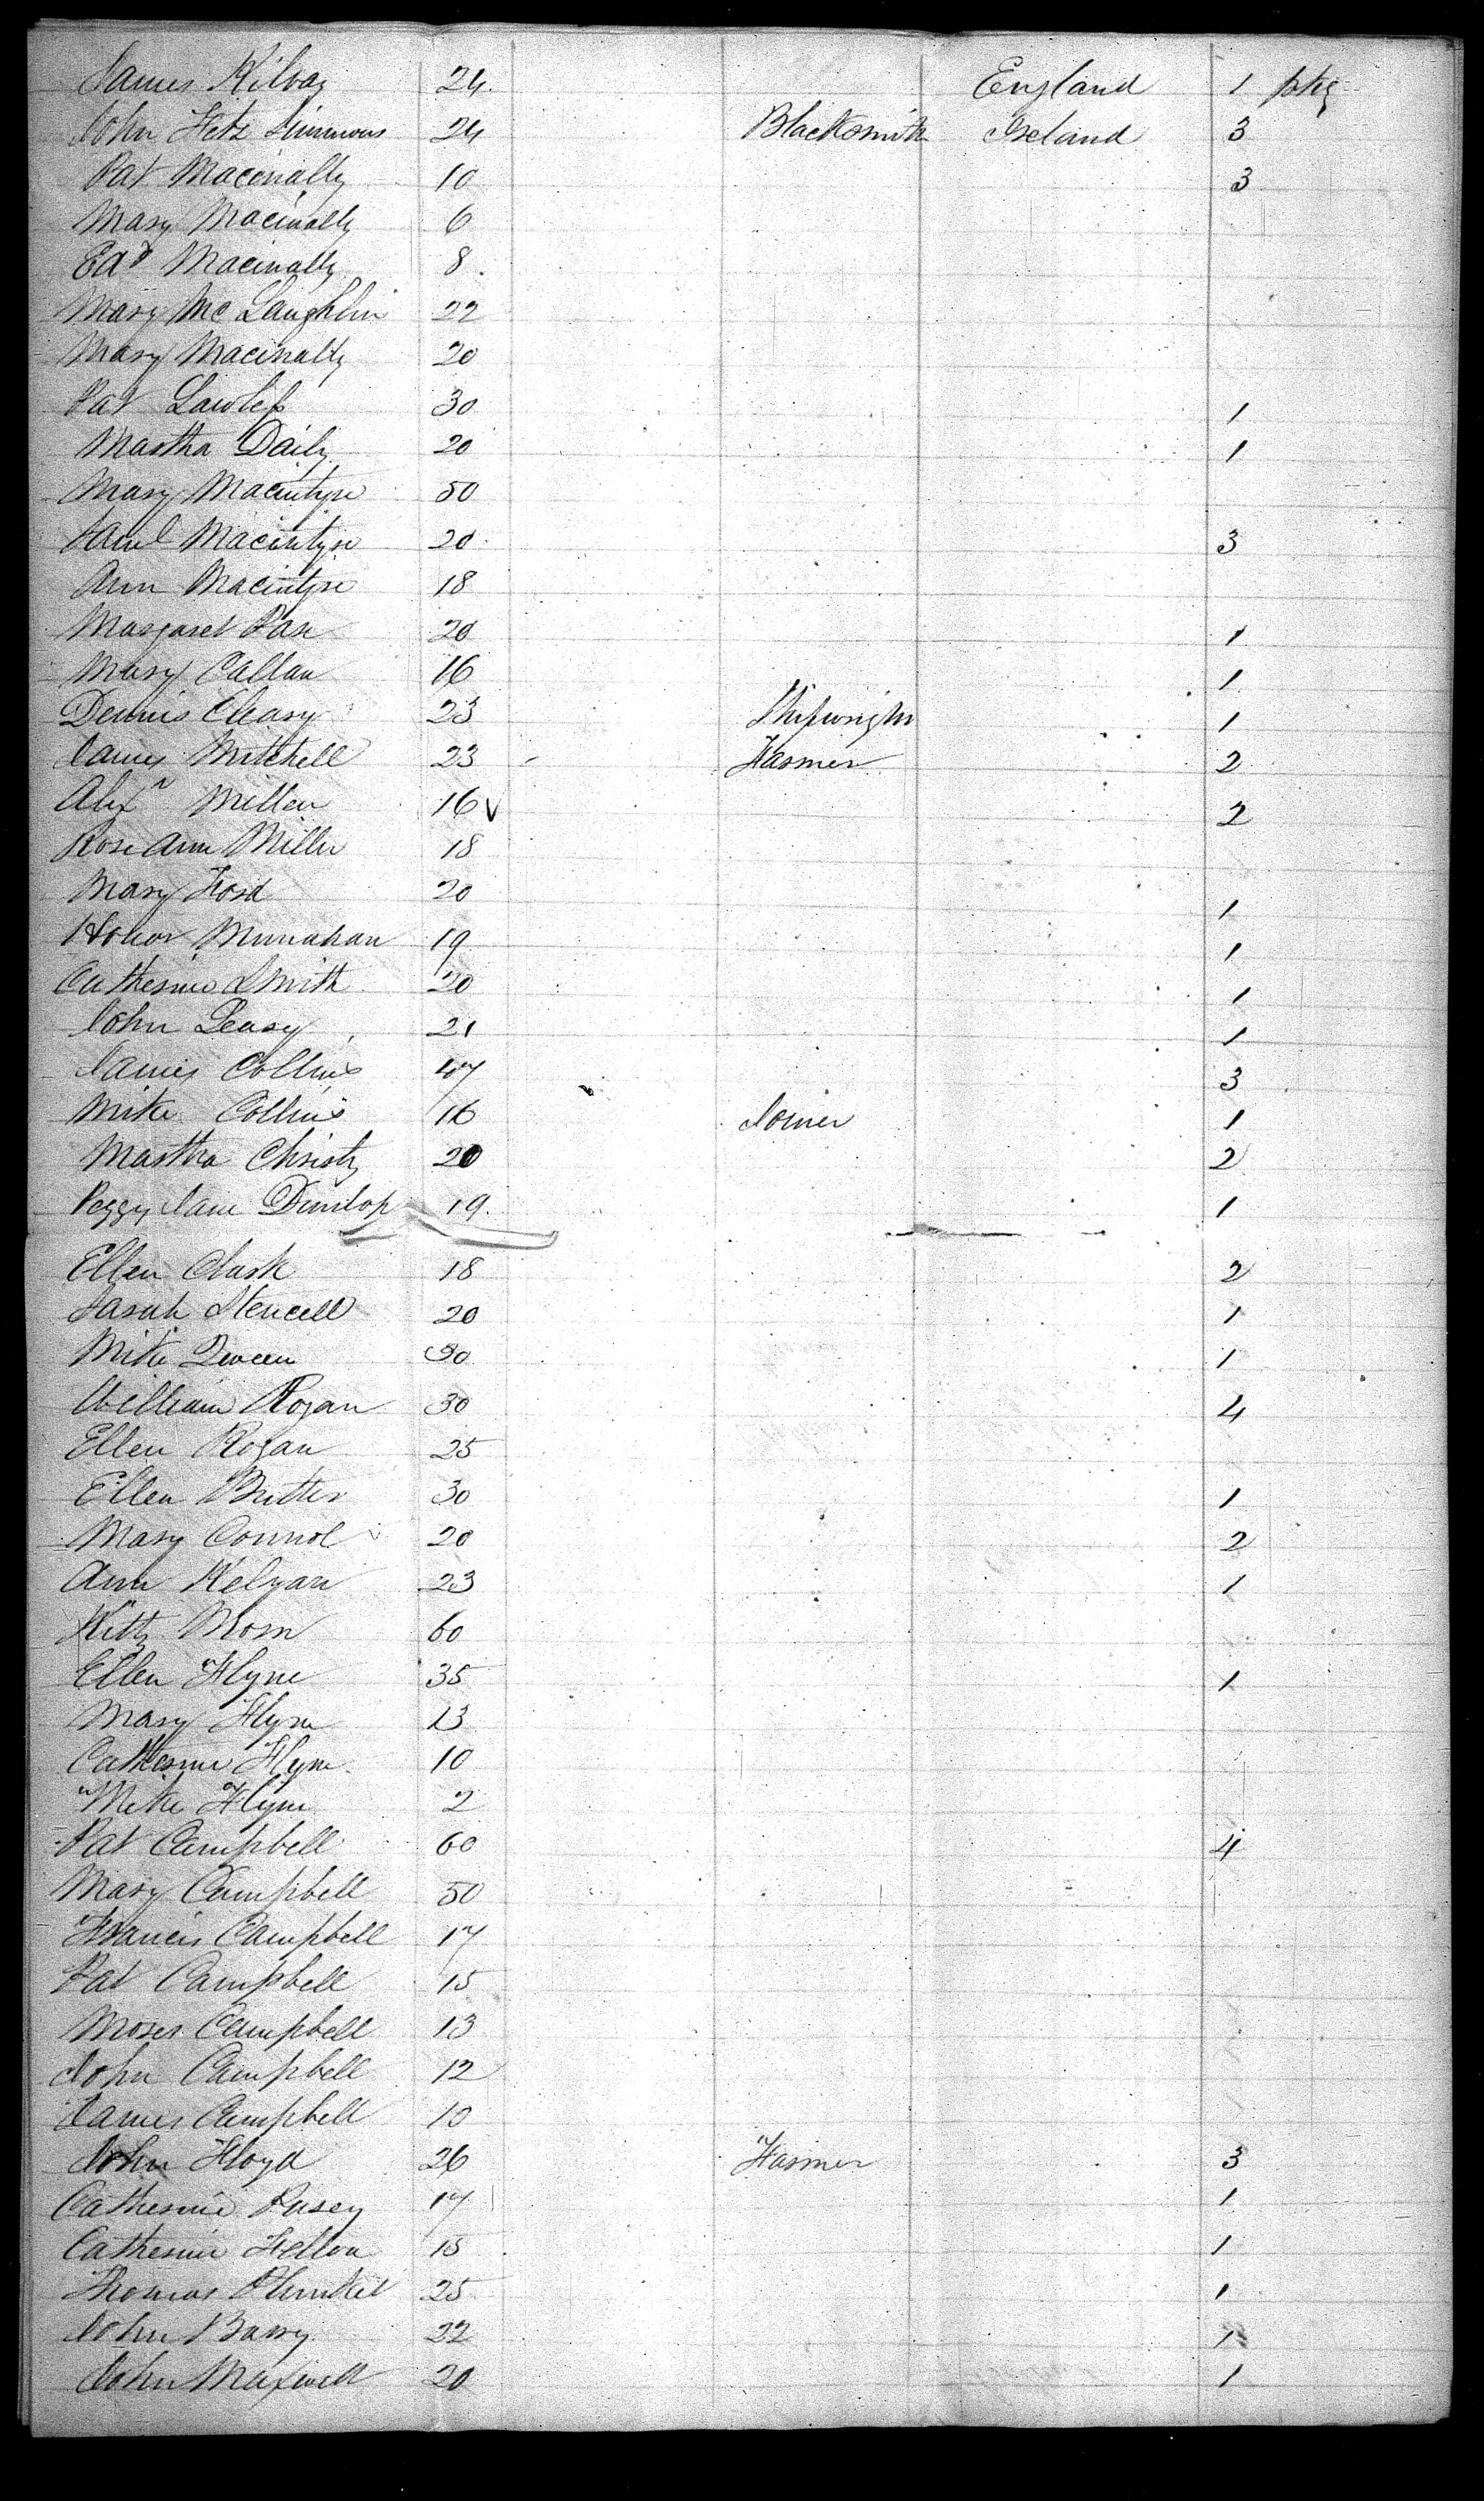 James Kilvay 24. England 1 pkg
John Fitz Simmons 24 Blacksmith Ireland 3
Pat Macinally 10 3
Mary Macinally 6
Edd Macinally 8.
Mary Mc Laughlin 22
Mary Macinally 20
Pat Lawless 30 1
Martha Daily 20 1
Mary Macintyre 50
Saml Macintyre 20 3
Ann Macintyre 18
Margaret 20 1
Mary Callan 16 1
Dennis Cleary 23 Shipwright 1
James Mitchell 23 Farmer 2
Alexr Miller 16 2
Rose Ann Miller 18
Mary Ford 20 1
Honor Munahan 19 1
Catherine Smith 20 1
John Leary 21 1
James Collins 47 3
Mike Collins 16 Joiner 1
Martha Christy 20 2
Peggy Jane Dunlop 19. 1
Ellen Clark 18 2
Sarah Stencell 20 1
Mike 30 1
William Rogan 30 4
Ellen Rogan 25
Ellen Butter 30 1
Mary Connol 20 2
Ann Kelyan 23 1
Kitty Morn 60
Ellen Flyne 35 1
Mary Flyne 13
Catherine Flyne 10
Mike Flyne 2
Pat Campbell 60 4
Mary Campbell 50
Francis Campbell 17
Pat Campbell 15
Moses Campbell 13
John Campbell 12
James Campbell 10
John Floyd 26 Farmer 3
Catherine Pusey 17 1
Catherine Fellon 18 1
Thomas Plunket 25 1
John Barry 22 1
John Maxwell 20 1